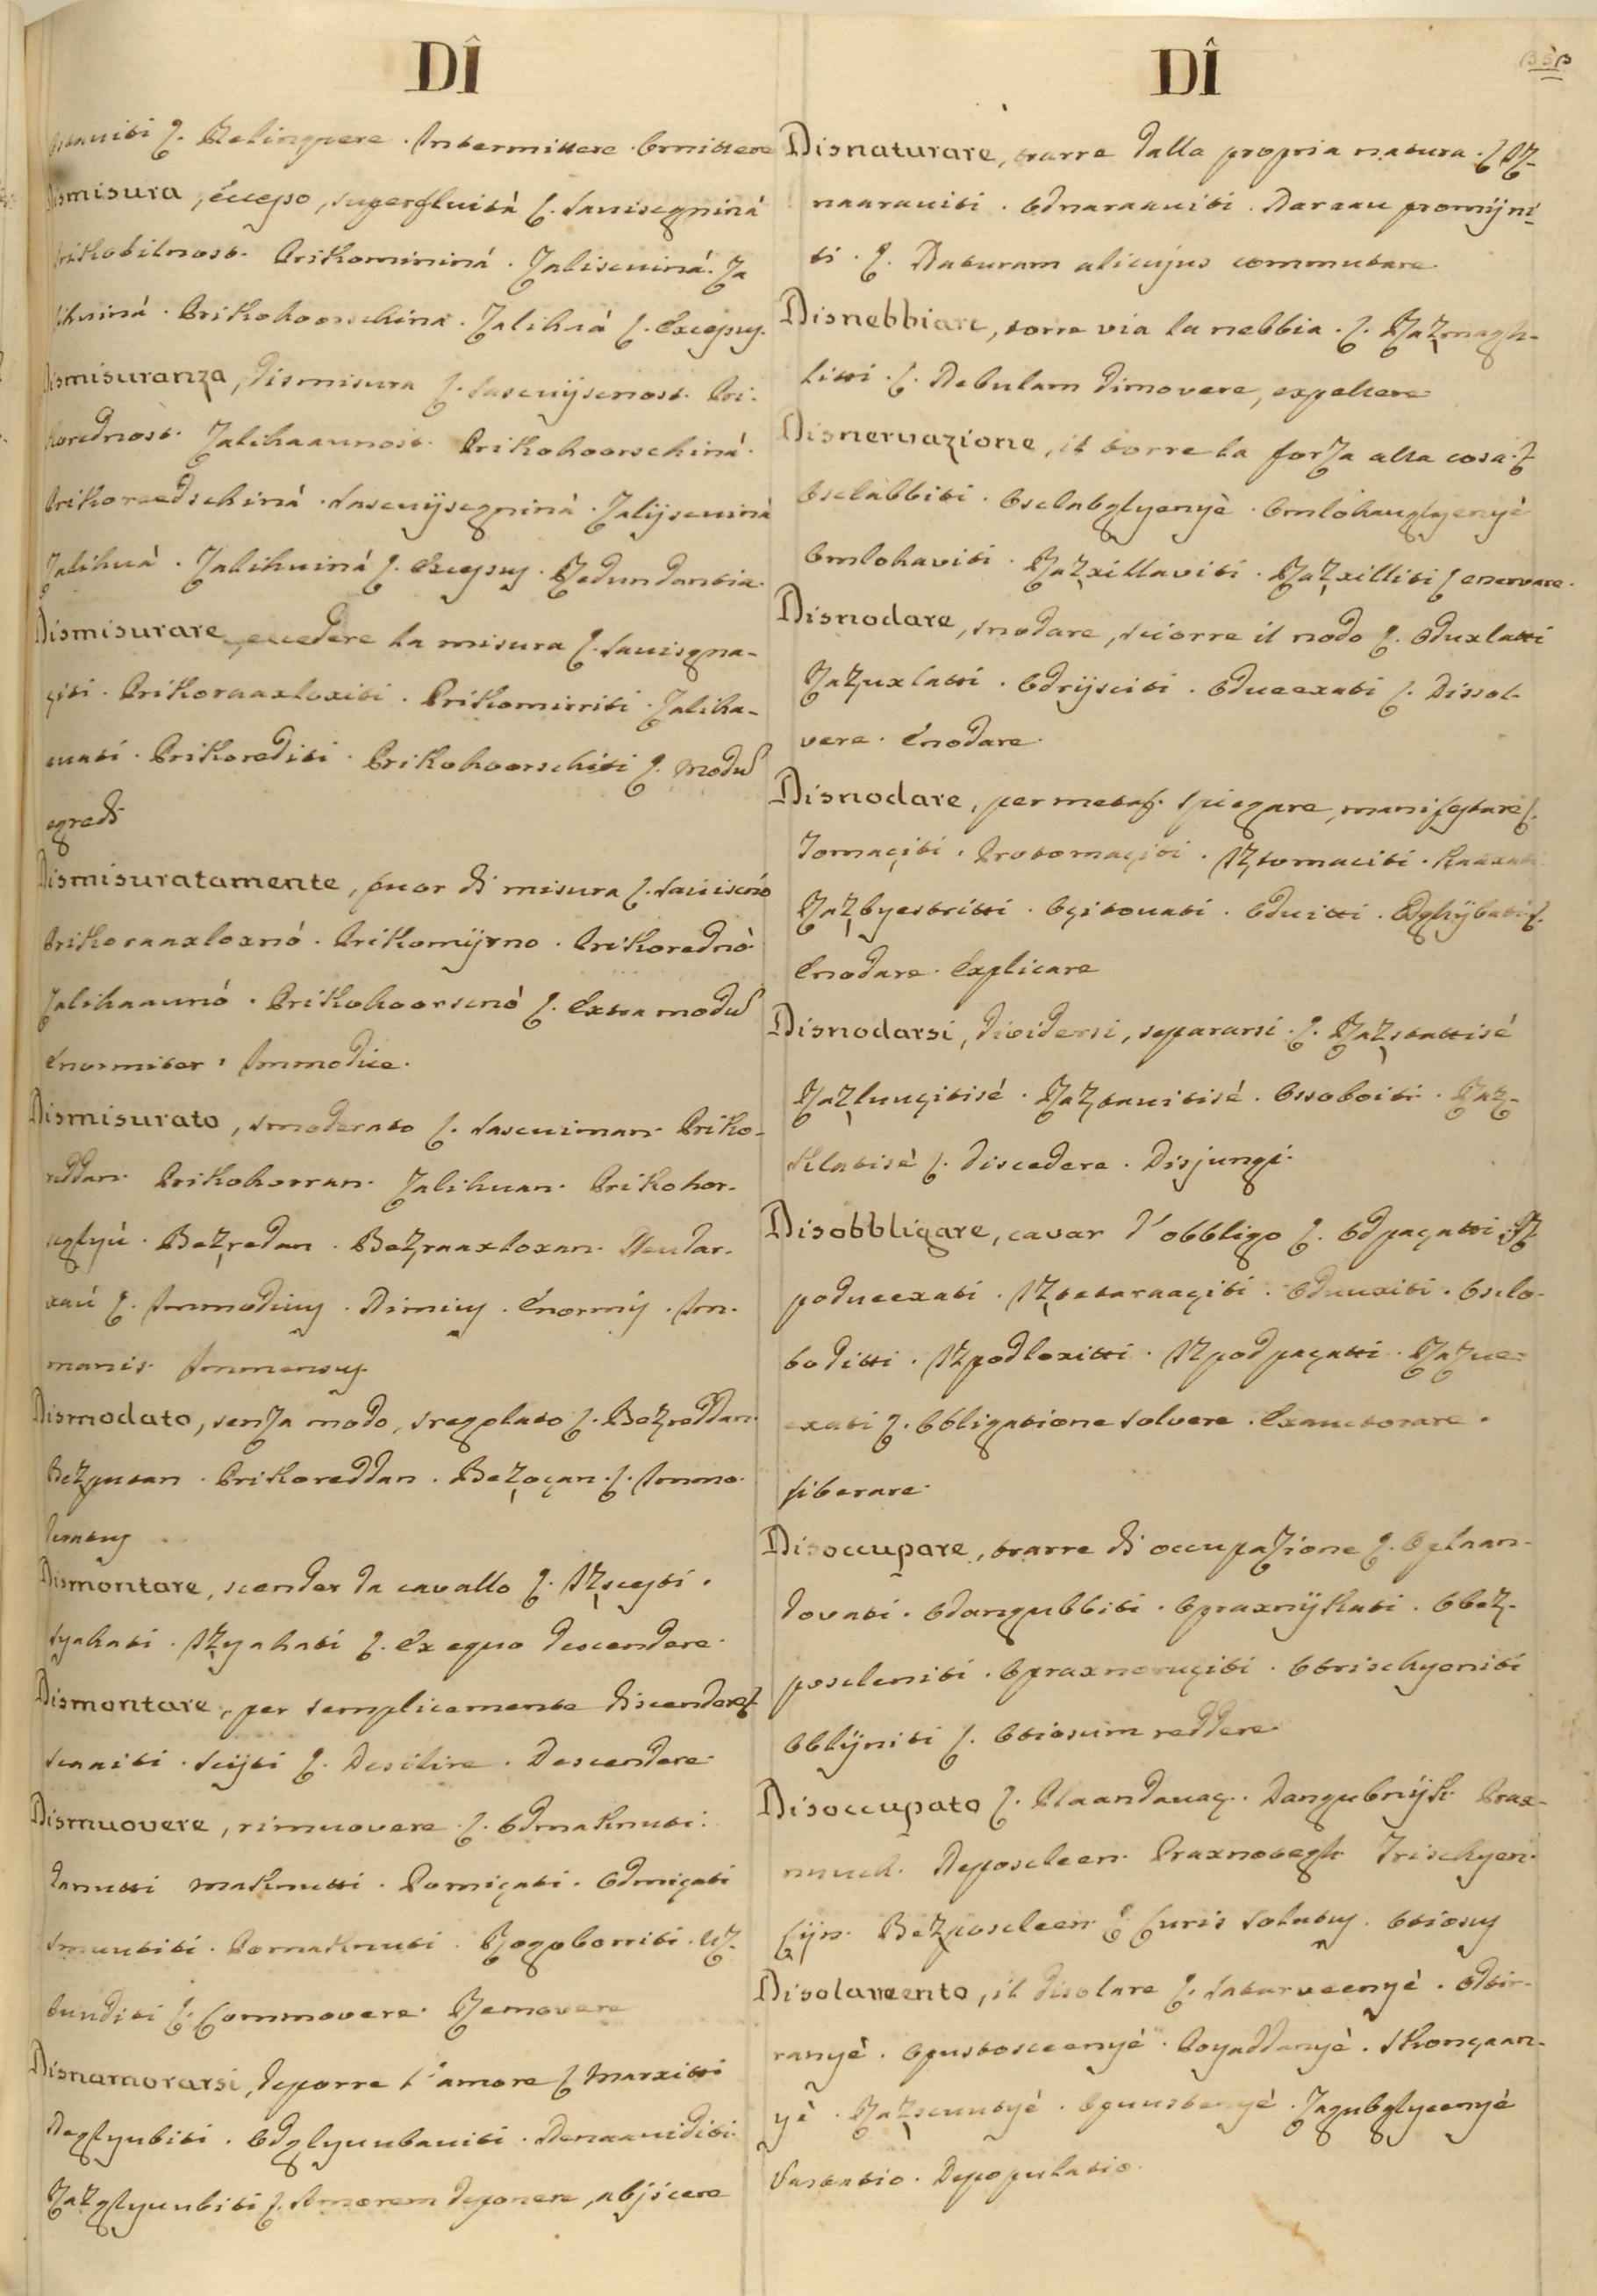 DÎ
ostaviti ſ. Relinquere . Intermittere . Omittere
Dismisura, eccesso, superfluità ſ. Savisegniná
Prikobilnost. Prikomininá . Zaliscviná. Za
lihviná . Prikohoorschina . Zalihuá ſ. Excessus.
Dismisuranza, dismisura ſ. Sascvijscnost. Pri-
korednost. Zalihaavnost. Prikohoorschiná.
Prikoreedschiná . Sascvijsegniná . Zalijscviná
Zalihuá . Zalihviná ſ. Excessus . Redundantia.
Dismisurare, eccedere la misura ſ. Savisgna-
çiti . Prikoraaxloxiti . Prikomirriti . Zaliha-
vati . Prikorediti . Prikohoorschiti ſ. Modũ
egredi
Dismisuratamente, fuor di misura ſ. Saviscnó
Prikoraaxloxnó . Prikomijrno . Prikorednó
Zalihaavnó . Prikohoorscnó ſ. Extra modũ
Enormiter . Immodice.
Dismisurato, smoderato ſ. Sascviman. Priko-
reddan. Prikohorran. Zalihuan. Prikohor-
seglyú . Bezredan . Bezraaxloxan. Neudar-
xaú ſ. Immodicus . Nimius . Enormis . Im-
manis. Immensus
Dismodato, senza modo, sregolato ſ. Bezreddan.
Bezputan . Prikoreddan . Bezoçan . ſ. Immo-
deratus
Dismontare, scender da cavallo ſ. Izscesti .
Syahati . Izyahati ſ. Ex equo descendere.
Dismontare, per semplicemente discendere ſ.
Scaaiti . Scijti ſ. Desilire . Descendere.
Dismuovere, rimuovere ſ. Odmaknuti.
Ganutti maknutti . Pomiçati . Odmiçati
Smuutiti . Pomaknuti . Rogoborriti . Uz-
bunditi ſ. Commovere. Removere
Disnamorarsi, deporre l'amore ſ. Marxitti
Neglyubiti . Odglyuubaviti . Nenaaviditi.
Razglyuubiti ſ. Amorem deponere, abjicere
DÎ
Disnaturare, trarre dalla propria natura . ſ. Iz-
naaraviti . Odnaraaviti . Naraav promijni-
ti . ſ. Naturam alicujus commutare.
Disnebbiare, torre via la nebbia . ſ. Razmagh-
litti . ſ. Nebulam dimovere, expellere
Disnervazione, il torre la forza alla cosa . ſ.
Osclabbiti . Osclabglyenyè . Omlohauglyenyè
Omlohaviti . Razxillaviti . Razxilliti ſ. enervare.
Disnodare, snodare, sciorre il nodo ſ. Oduxlatti
Razuxlatti . Odrijsciti . Odveexati ſ. Dissol-
vere . Enodare.
Disnodare, per metaf. spiegare, manifestare ſ.
Tomaçiti . Protomaçiti . Iztomaciti . Kaaxati
Razbyestritti . Oçitovati . Odvitti . Odghijbati ſ.
Enodare . Explicare
Disnodarsi, dividersi, separarsi . ſ. Razstattisé
Razluuçitisé . Raztavitisé . Ossoboiti . Raz-
sklatisè ſ. Discedere . Disjungi.
Disobbligare, cavar d'obbligo ſ. Odpaçatti . Iz
podveexati . Iztetaraaçiti . Odvuxiti . Osclo-
boditti . Izpodloxitti . Izpodpaçatti . Razve-
exati ſ. Obligatione solvere . Exauctorare .
Liberare.
Disoccupare, trarre di occupazione ſ. Oplaan-
dovati . Odangubbiti . Opraxnijkati . Obez-
poscleniti . Opraxnoruçiti . Otrischyeniti
Oblijniti ſ. Otiosum reddere.
Disoccupato ſ. Plaandavaç . Dangubnijk Prax-
nuuch. Neposcleen. Praxnovegh. Trischyeni.
Lijn. Bezposcleen ſ. Curis solutus . Otiosus
Disolamento, il disolare ſ. Satarveenyè . Odtir-
ranyè . Opustosceenyè . Poyaddanyè . Skonçaan-
yè . Razscuutyé . Opuustenyé . Zagubglyeenyé
Vastatio . Depopulatio.